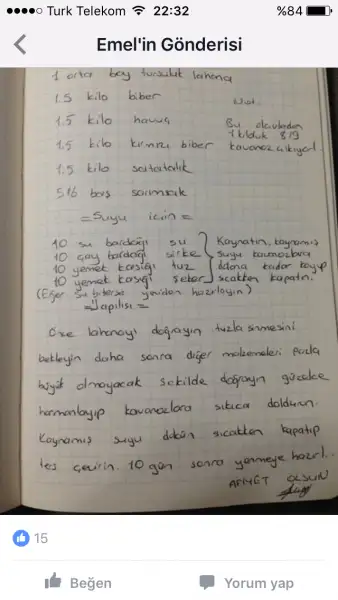 Turk Telekom 22:32 %84
Emel'in Gönderisi
1 orta boy turşuluk lahana
1.5 kilo biber
1.5 kilo havuç
1.5 kilo kırmızı biber
1.5 kilo salatalık
5/6 baş sarımsak
Not:
Bu
1 kiloluk 8/9
kavanoz çıkıyor
= Suyu için =
10 su bardağı su
10 çay bardağı sirke
10 yemek kaşığı tuz
10 yemek kaşığı şeker
Kaynatın, kaynamış
suyu kavanozlara
kadar koyup
sıcakken kapatın.
(Eğer su biterse yeniden hazırlayın)
= Yapılışı =
Önce lahanayı doğrayın tuzla sinmesini
bekleyin daha sonra diğer malzemeleri fazla
büyük olmayacak şekilde doğrayın güzelce
harmanlayıp kavanozlara sıkıca doldurun.
Kaynamış suyu dökün sıcakken kapatıp
ters çevirin. 10 gün sonra yenmeye hazır...
AFİYET OLSUN
15
Beğen
Yorum yap